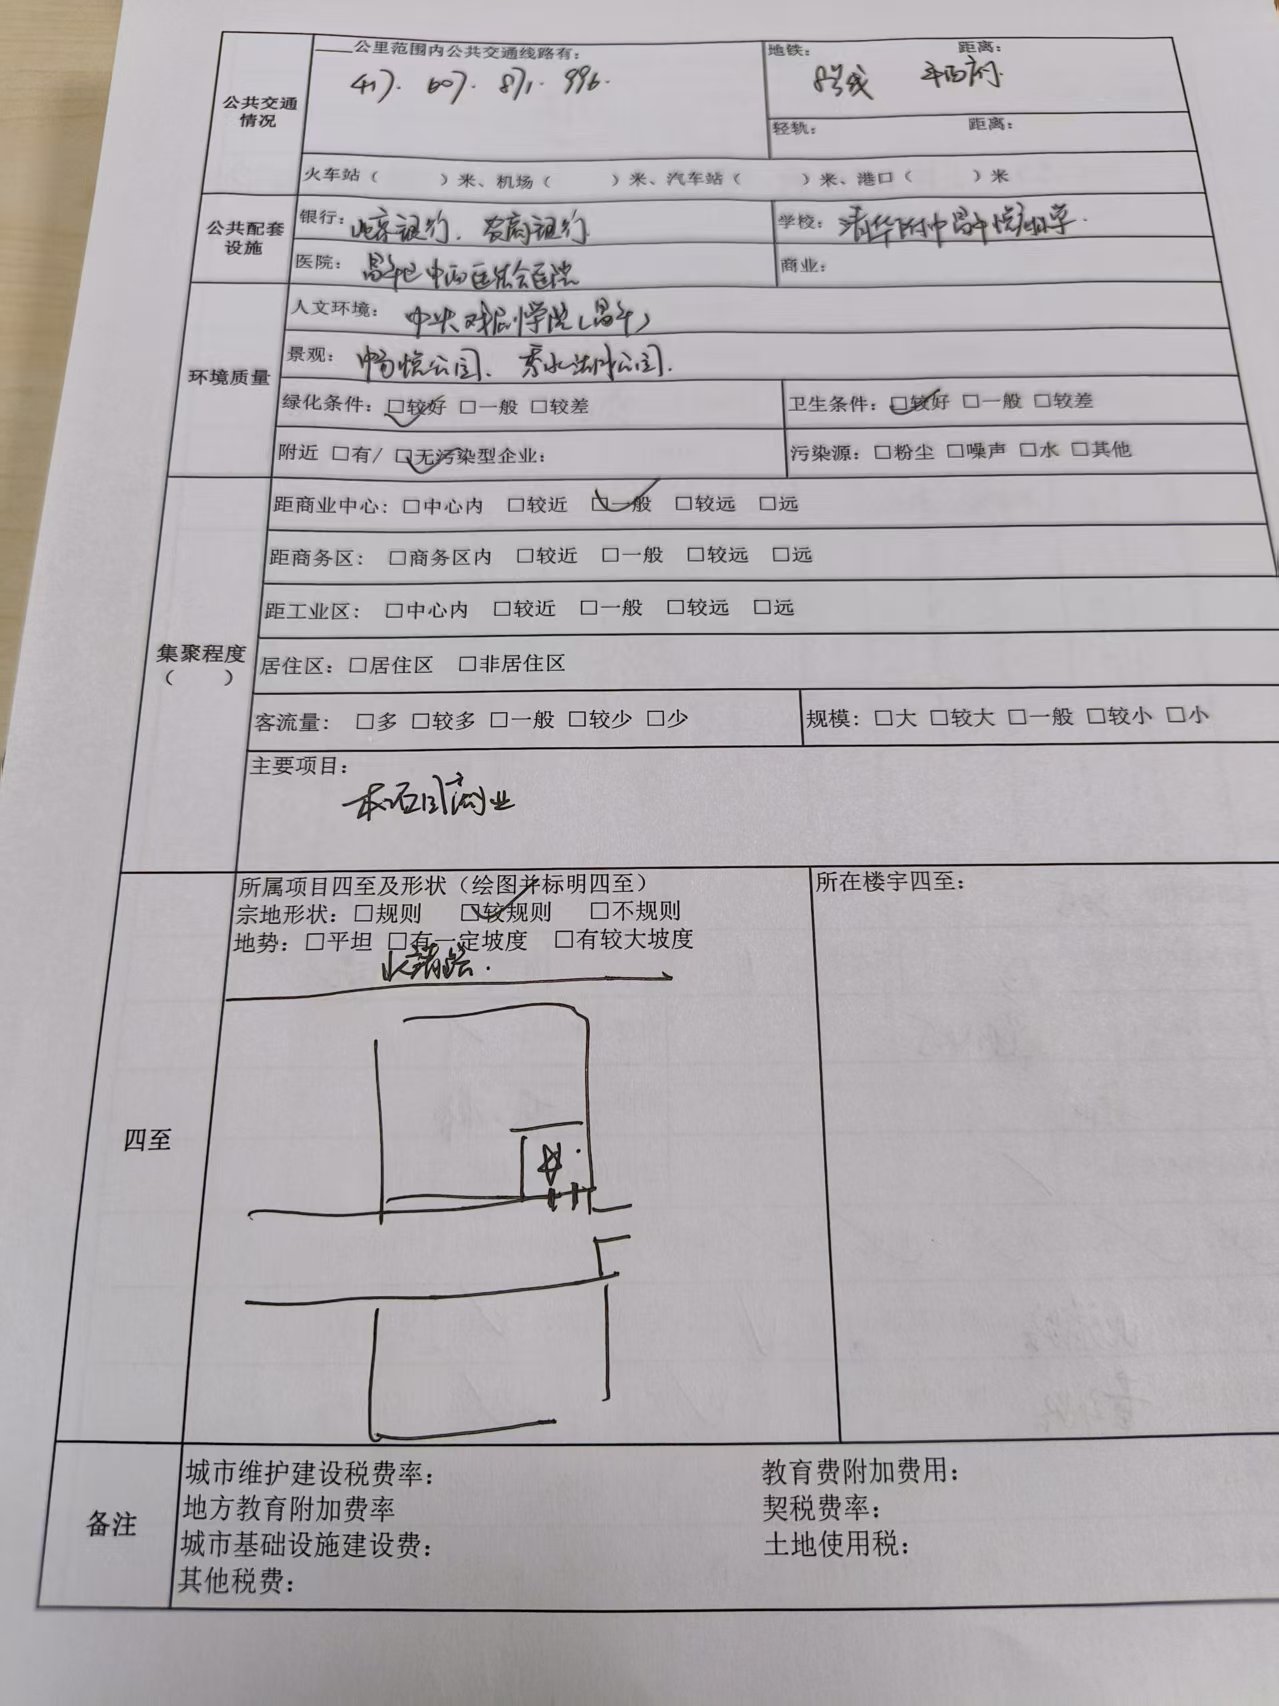 公共交通情况
____公里范围内公共交通线路有：
417. 607. 871. 996.
地铁： 距离：
8号线 平西府
轻轨： 距离：
火车站（ ）米、机场（ ）米、汽车站（ ）米、港口（ ）米
公共配套设施
银行：北京银行、农商银行 学校：清华附中昌平
医院：昌平区中西医结合医院 商业：
环境质量
人文环境：中央戏剧学院（昌平）
景观：畅悦公园、公园.
绿化条件：☑较好 □一般 □较差 卫生条件：☑较好 □一般 □较差
附近 □有/ ☑无污染型企业： 污染源：□粉尘 □噪声 □水 □其他
集聚程度
（ ）
距商业中心：□中心内 □较近 ☑一般 □较远 □远
距商务区： □商务区内 □较近 □一般 □较远 □远
距工业区： □中心内 □较近 □一般 □较远 □远
居住区：□居住区 □非居住区
客流量： □多 □较多 □一般 □较少 □少 规模：□大 □较大 □一般 □较小 □小
主要项目：
商业
四至
所属项目四至及形状（绘图并标明四至） 所在楼宇四至：
宗地形状：□规则 ☑较规则 □不规则
地势：□平坦 □有一定坡度 □有较大坡度
备注
城市维护建设税费率： 教育费附加费用：
地方教育附加费率 契税费率：
城市基础设施建设费： 土地使用税：
其他税费：